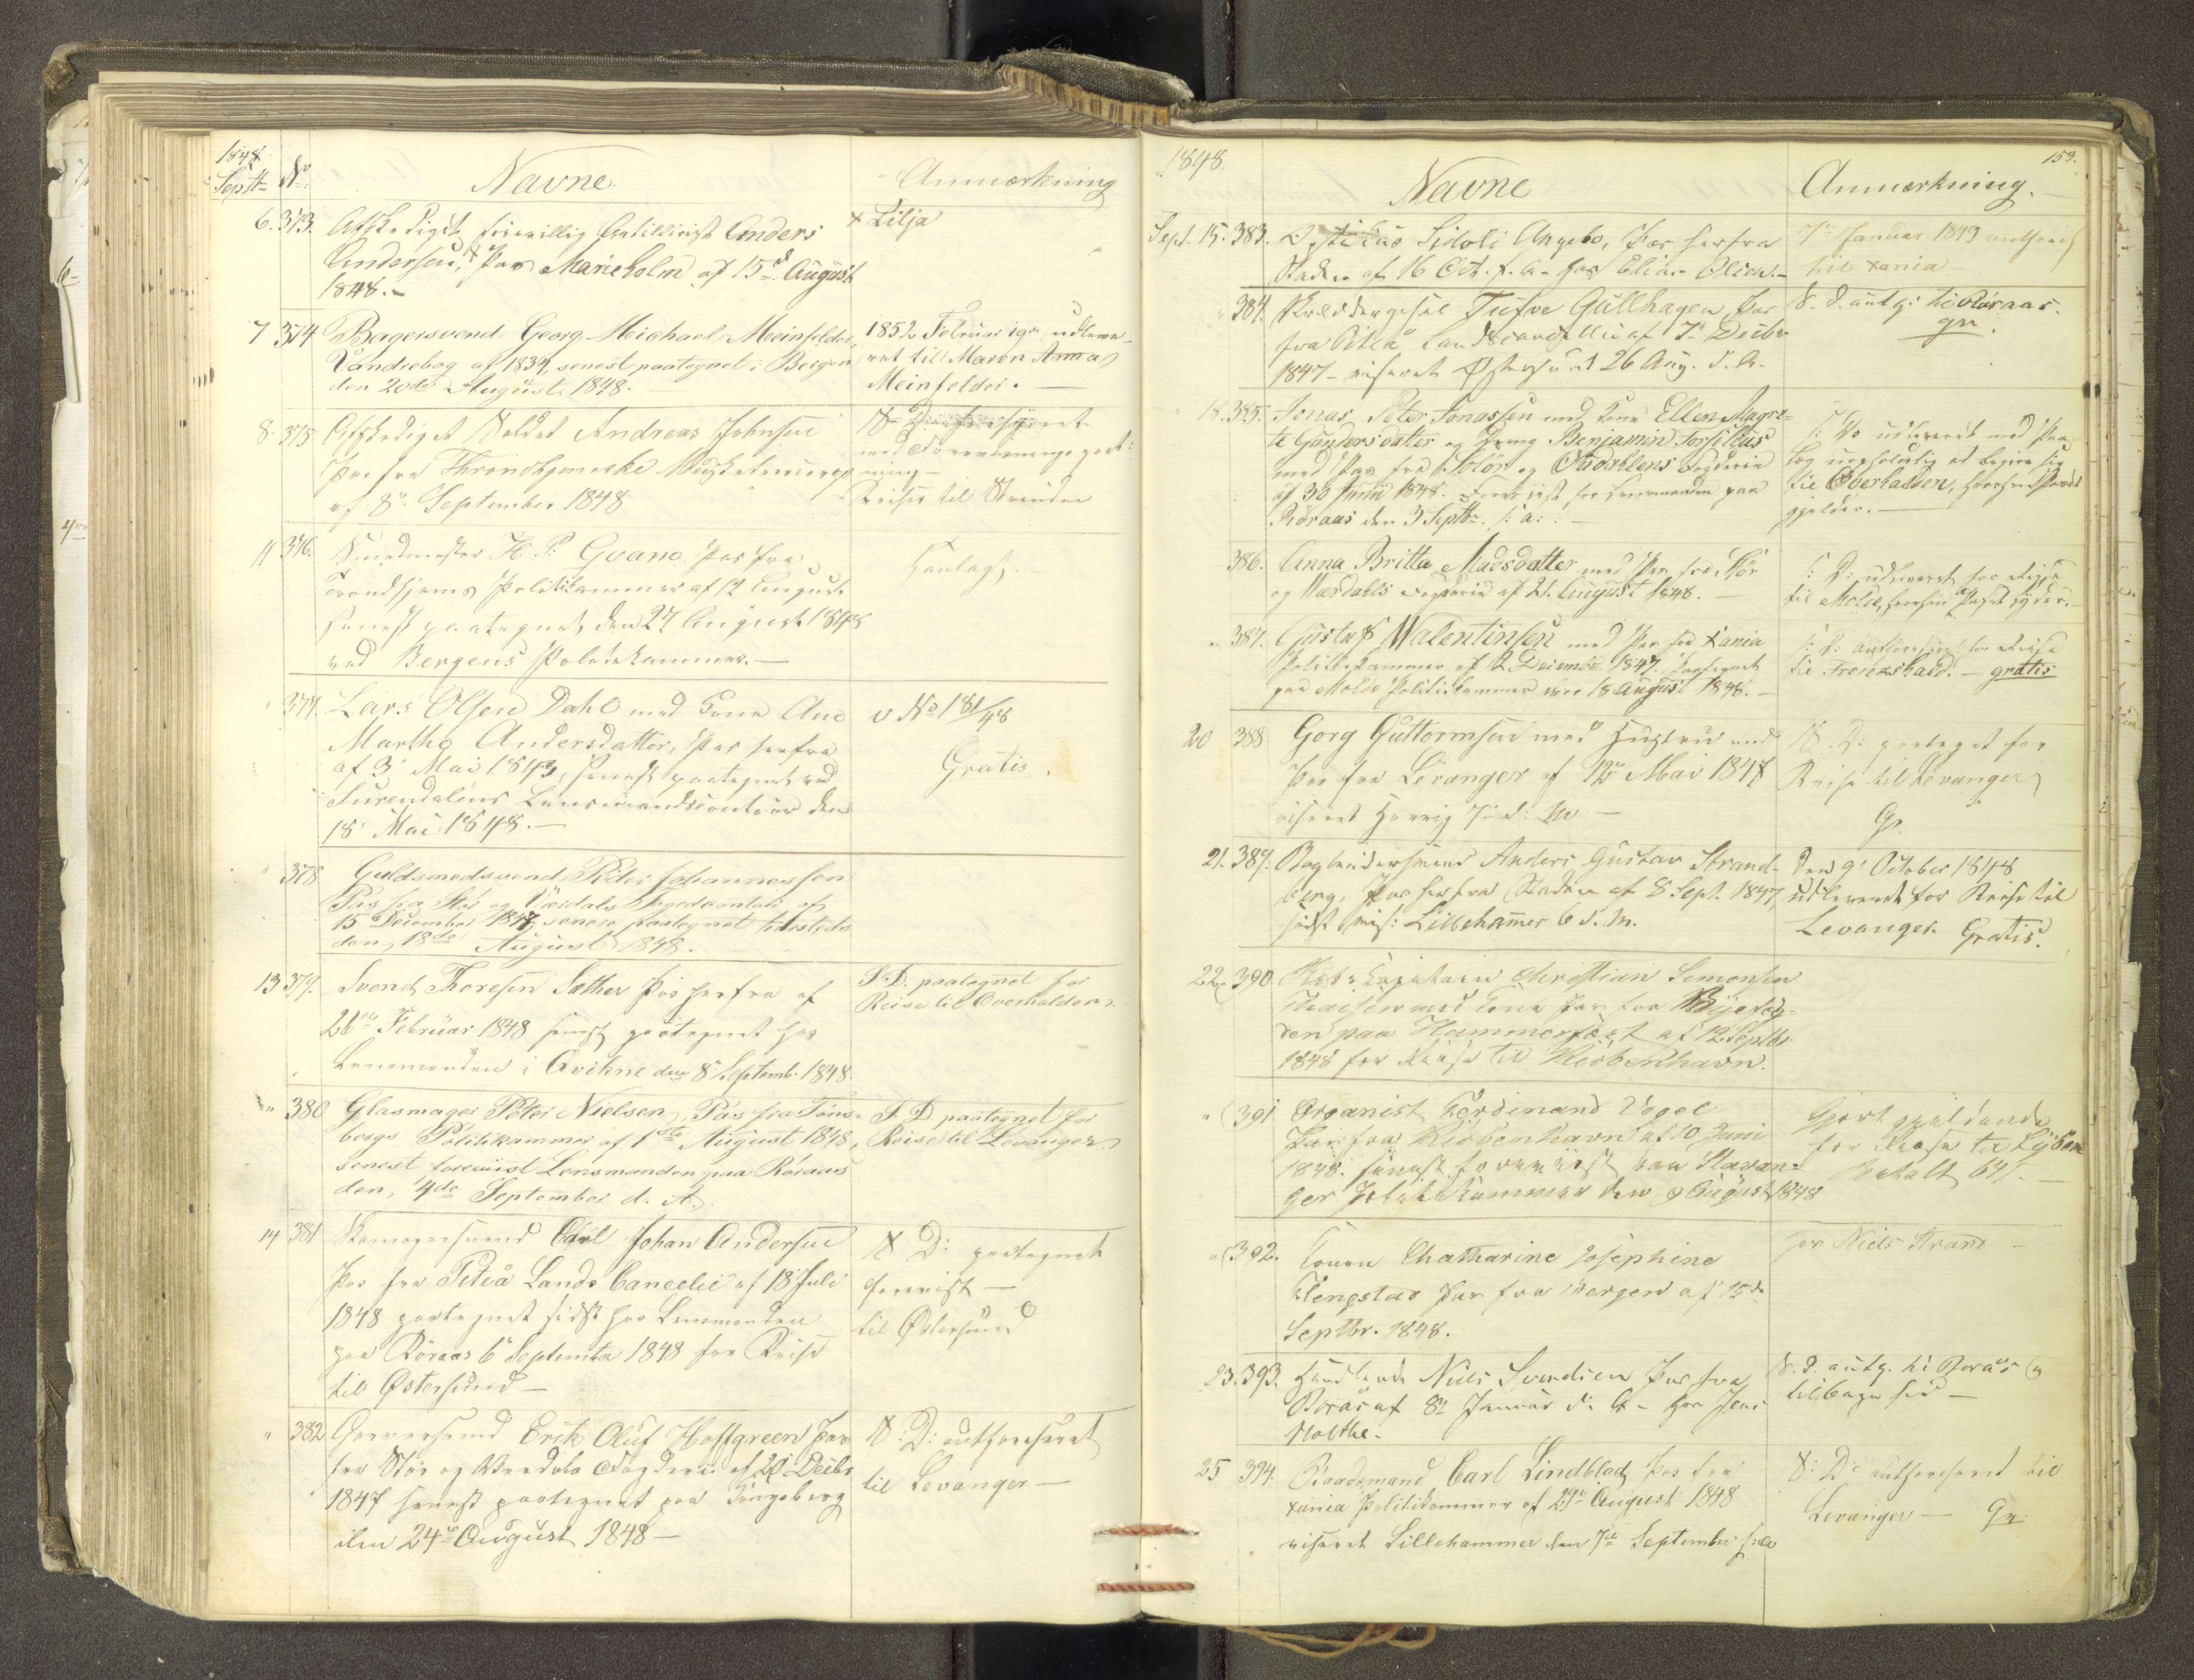 1848
Septb.
No.
Navne.
Anmærkning
6. 373. Afskediget frivillig Artillerist Anders
Andersen, + Pas Marieholm af 15de August
1848.-
+ Lilja
7 374 Bagersvend Georg Michael Meinfelder,
Vandrebog af 1839, senest paategnet i Bergen
den 20de August 1848.
1852 Februar 19de udleve-
ret til Maren Anna
Meinfelder. -
8. 375 Afskediget Soldat Andreas Johnsen
Pas fra Throndhjemske
af 8de September 1848
S. D.
Reise til Strinden
11 376. Smedmester H. P. Qvane Pas fra
Trondhjems Politikammer af 12 August
senest paategnet den 24 August 1848
ved Bergens Politikammer. -
Henlagt. -
" 377. Lars Olsen Dahl med Kone Ane
Marthe Andersdatter, Pas herfra
af 3 Mai 1843, senest paategnet ved
Surendalens Lensmandscontoir den
18 Mai 1848. -
v No 181/48
Gratis.
" 378 Guldsmedsvend Peter Johannessen
Pas fra Stør og Værdals Fogedcontoir af
15 December 1847, senere paategnet hersteds
den 18de August 1848.
13 379. Svend Thoresen Sæther Pas herfra af
26de Februar 1848 senest paategnet hos
Lensmanden i Qvikne den 8de Septemb. 1848.
S. D. paategnet for
Reise til Overhalden.
" 380 Glasmager Peter Nielsen, Pas fra Tøns-
bergs Politikammer af 1ste August 1848,
senest foreviist Lensmanden paa Røraas
den 4de September d. A.
S. D. paategnet for
Reise til Levanger
14 381 Skomagersvend Carl Johan Andersen
Pas fra Piteå Lands Cancelie af 18 Juli
1848 paategnet sidst hos Lensmanden
paa Røraas 6 September 1848 for Reise
til Østersund -
S. D: paategnet
forevist -
til Østersund
" 382 Garversvend Erik Oluf Hoffgreen Pas
fra Stør og Værdals Fogderie af 20 Decbr
1847 senest paategnet paa Kongsberg
den 24de August 1848 -
S. D: autoriseret
til Levanger -
1848.
153.
Navne
Anmærkning.
Sept. 15. 383. Sidoli Angelo, Pas herfra
Staden af 16 Oct. f. A. hos Elias Olsen. -
7de Januar 1849 authoris
til Xania -
" 384. Tufve Gullhagen, Pas
fra Piteå Landscancellie af 7de Decbr
1847 - viseret Østersund 26 Aug. d. A.
S. D. autg: til Røraas.
gr.
18. 385. Jonas Peter Jonassen med Kone Ellen Magre-
te Gundersdatter og Dreng Benjamin Torsillus
med Pas fra Solør og Oudalens Fogderie
af 30 Juni 1848. Foreviist for Lensmanden paa
Røraas den 3 Septbr. s: a: -
s: D: udleveret med Paa-
læg uopholdelig at begive sig
til Overhalden, hvorhen Passet
gjelder. -
386. Anna Britta Madsdatter med Pas fra Stør
og Værdahls Fogderie af 21 August 1848. -
s: D: udleveret for at reise
til Molde, hvorhen Passet lyder. -
" 387. Gustaf Walentinsen med Pas fra Xania
Politikammer af 2 December 1847. Paategnet
paa Molde Politikammer den 18 August 1848. -
s: D: authoriseret for at reise
til Fredrikshald. - gratis
20 388 Gorg Guttormsen med Hustru med
Pas fra Levanger af 12te Mai 1847
viseret 7de d: M -
S. D: paategnet for
Reise til Levanger
Gr.
21. 389. Bogbindersvend Anders Gustav Strand-
berg, Pas herfra Staden af 8 Sept. 1847,
sidst vis: Lillehamer 6 d. M.
Den 9de October 1848
udleveret for Reise til
Levanger. Gratis.
22. 390 Christian Simonsen
med Kone Pas fra Byefog-
den paa Hammerfest af 12 Septbr
1848 for Reise til Kiøbenhavn.
" 391 Organist Ferdinand Vogel
Pas fra Kiøbenhavn af 10 Juni
1848. senest foreviist paa Stavan-
ger Politikammer den 9 August 1848
Gjort gjeldende
for Reise til Kjøben
betalt 64 s. -
" 392. Konen Chatharine Josephine
Klengstad Pas fra Bergen af 15de
Septbr. 1848.
hos Niels Strand -
23. 393. Handlende Niels Svendsen Pas fra
Borås af 8de Januar d: A - hos Jens
Holthe. -
S. D. autg. til Borås og
tilbage hid -
25 394. Raadsmand Carl Lindblad, Pas fra
Xania Politikammer af 29de August 1848
viseret Lillehammer den 7de September s: A
S. D: authoriseret til
Levanger - Gr.